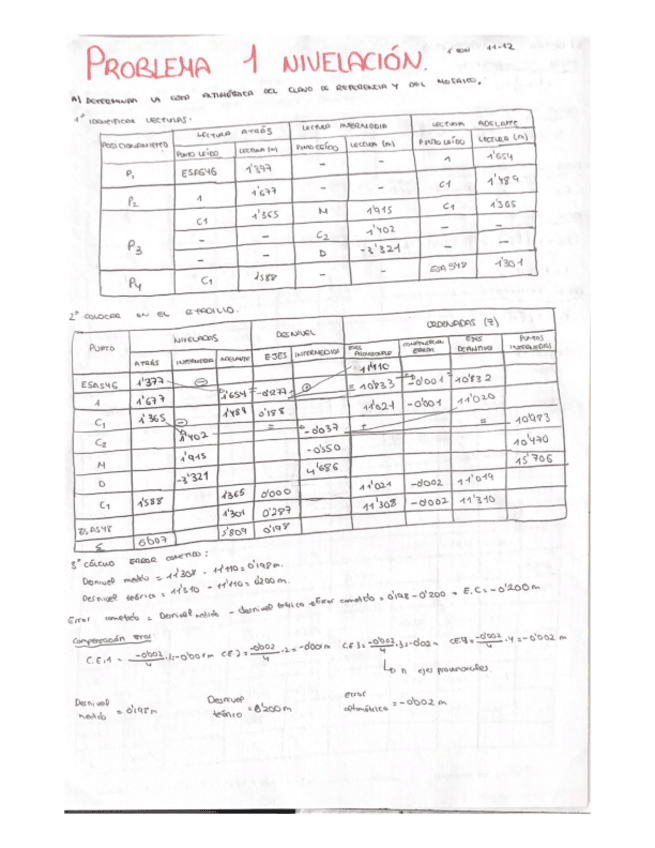 PROBLEMA 1 NIVELACIÓN.
11-12
A) DETERMINAR LA COTA ALTIMÉTRICA DEL CLAVO DE REFERENCIA Y DEL MOSAICO.
1º IDENTIFICAR LECTURAS.
POSICIONAMIENTO LECTURA ATRÁS LECTURA INTERMEDIA LECTURA ADELANTE
PUNTO LEÍDO LECTURA (m) PUNTO LEÍDO LECTURA (m) PUNTO LEÍDO LECTURA (m)
P1 ESA546 1'377 - - 1 1'654
P2 1 1'677 - - C1 1'489
P3 C1 1'365 M 1'915 C1 1'365
- - C2 1'402 - -
- - D -3'321 - -
P4 C1 1'588 - - ESA548 1'301
2º COLOCAR EN EL ESTADILLO.
PUNTO NIVELADAS DESNIVEL ORDENADAS (Z)
ATRÁS INTERMEDIA ADELANTE EJES INTERMEDIOS EJES PROVISIONALES COMPENSACIÓN ERROR EJES DEFINITIVOS PUNTOS INTERMEDIOS
11'110
ESA546 1'377 1'654 -0'277 10'833 -0'001 10'832
1 1'677 1'489 0'188 11'021 -0'001 11'020
C1 1'365 = =
C2 1'402 -0'037 10'983
M 1'915 -0'550 10'470
D -3'321 4'686 15'706
C1 1'588 1365 0'000 11'021 -0'002 11'019
1'301 0'287 11'308 -0'002 11'310
ESA548 5'809 0'198
Σ 6'007
3º CÁLCULO ERROR COMETIDO:
Desnivel medido = 11'308 - 11'110 = 0'198 m.
Desnivel teórico = 11'310 - 11'110 = 0'200 m.
Error cometido = Desnivel medido - desnivel teórico → Error cometido = 0'198 - 0'200 = E.C = -0'200 m
Compensación error:
C.E.1 = -0'002/4 .1 = -0'001 m C.E 2 = -0'002/4 .2 = -0'001 m C.E 3 = -0'002/4 .3 = -0'002 C.E.4 = -0'002/4 .4 = -0'002 m
↳ n ejes provisionales.
Desnivel medido = 0'198 m Desnivel teórico = 0'200 m error altimétrico = -0'002 m